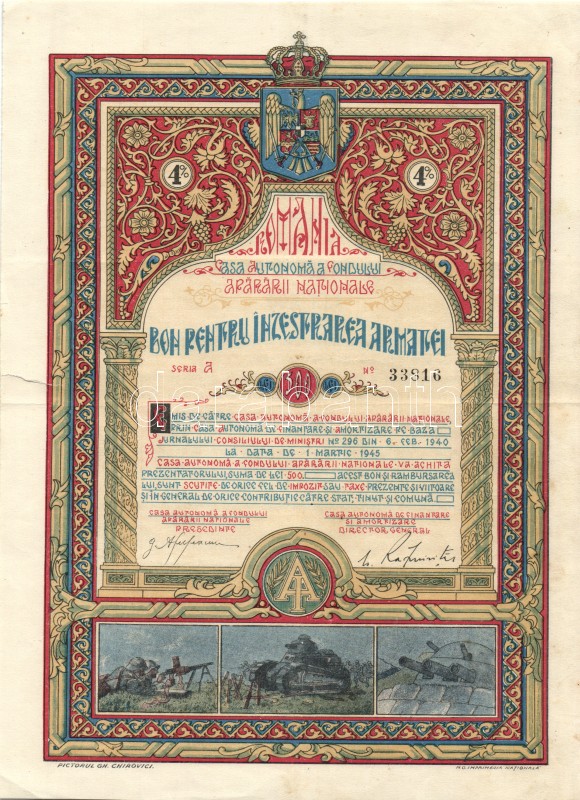 4% 4%
ROMÂNIA
CASA AUTONOMĂ A FONDULUI
APĂRĂRII NAȚIONALE
BON PENTRU ÎNZESTRAREA ARMATEI
SERIA A Nº 33916
EMIS DE CĂTRE CASA AUTONOMĂ A FONDULUI APĂRĂRII NAȚIONALE
PRIN CASA AUTONOMĂ DE FINANȚARE ȘI AMORTIZARE PE BAZA
JURNALULUI CONSILIULUI DE MINIȘTRI Nº 296 DIN 6. FEB. 1940
LA DATA DE 1 MARTIE 1945
CASA AUTONOMĂ A FONDULUI APĂRĂRII NAȚIONALE VA ACHITA
PREZENTATORULUI, SUMA DE LEI 500. ACEST BON ȘI RAMBURSAREA
LUI, SUNT SCUTITE DE ORICE FEL DE IMPOZIT SAU TAXE PREZENTE ȘI VIITOARE
ȘI ÎN GENERAL DE ORICE CONTRIBUȚIE CĂTRE STAT, ȚINUT ȘI COMUNĂ
CASA AUTONOMĂ A FONDULUI
APĂRĂRII NAȚIONALE
PREȘEDINTE
CASA AUTONOMĂ DE FINANȚARE
ȘI AMORTIZARE
DIRECTOR GENERAL
PICTORUL GH. CHIROVICI.
M.O. IMPRIMERIA NAȚIONALĂ